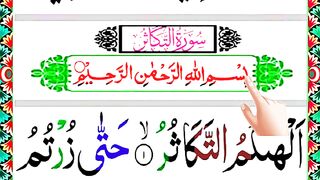 سورة التكاثر
بِسْمِ اللهِ الرَّحْمٰنِ الرَّحِيْمِ
اَلْهٰىكُمُ التَّكَاثُرُ ۙ﴿١﴾ حَتّٰى زُرْتُمُ